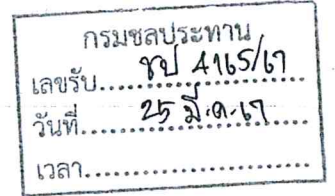 กรมชลประทาน
เลขรับ ชป 4165/67
วันที่ 25 มี.ค.67
เวลา